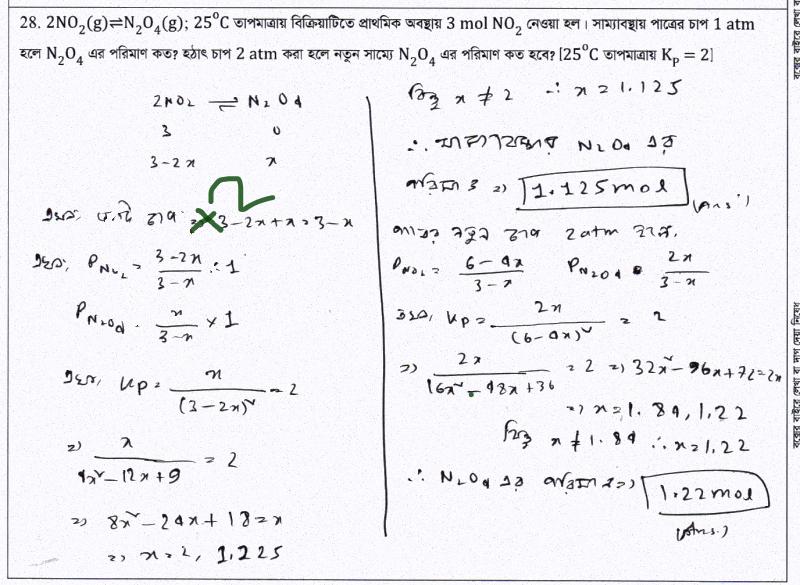 28. 2NO₂(g)⇌N₂O₄(g); 25°C তাপমাত্রায় বিক্রিয়াটিতে প্রাথমিক অবস্থায় 3 mol NO₂ নেওয়া হল। সাম্যাবস্থায় পাত্রের চাপ 1 atm
হলে N₂O₄ এর পরিমাণ কত? হঠাৎ চাপ 2 atm করা হলে নতুন সাম্যে N₂O₄ এর পরিমাণ কত হবে? [25°C তাপমাত্রায় K_P = 2]
2NO₂ ⇌ N₂O₄
3 0
3-2x x
এখন, মোট চাপ = 3-2x+x = 3-x
এখন, P_NO₂ = (3-2x)/(3-x) · 1
P_N₂O₄ = x/(3-x) × 1
এখন, Kp = x/(3-2x)² = 2
⇒ x/(4x²-12x+9) = 2
⇒ 8x²-24x+18=x
⇒ x=2, 1.225
কিন্তু x ≠ 2 ∴ x = 1.125
∴ সাম্যাবস্থায় N₂O₄ এর
পরিমাণ ⇒ 1.125 mol (Ans:)
নতুন চাপ 2atm হলে,
P_NO₂ = (6-4x)/(3-x) P_N₂O₄ = 2x/(3-x)
এখন, Kp = 2x/(6-4x)² = 2
⇒ 2x/(16x²-48x+36) = 2 ⇒ 32x²-96x+72=2x
⇒ x=1.84, 1.22
কিন্তু x ≠ 1.84 ∴ x=1.22
∴ N₂O₄ এর পরিমাণ ⇒ 1.22 mol
(Ans.)